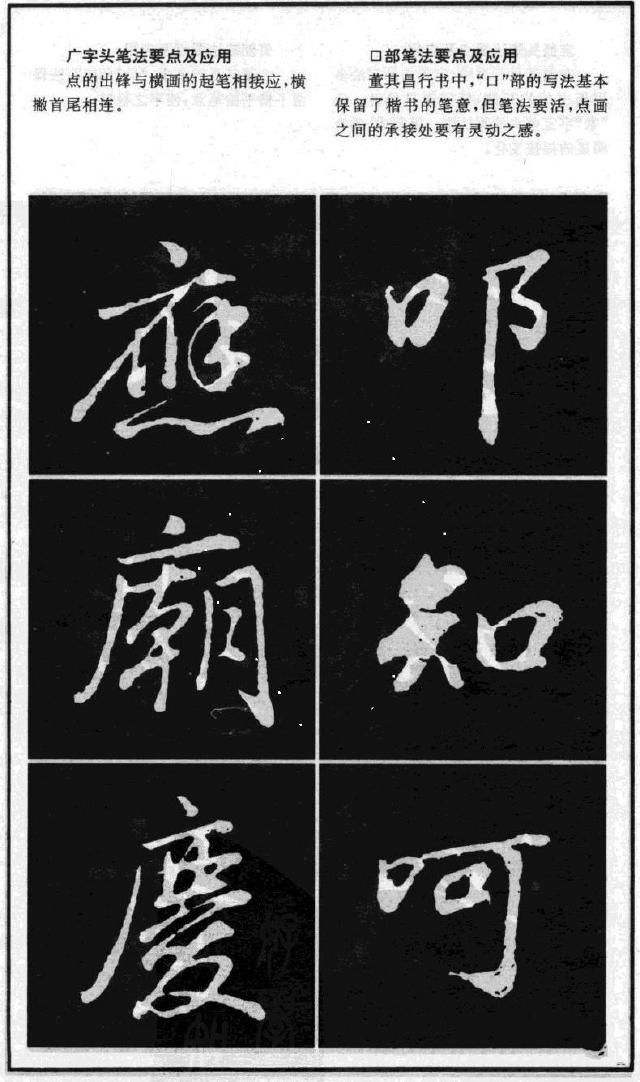 广字头笔法要点及应用
点的出锋与横画的起笔相接应,横
撇首尾相连。
口部笔法要点及应用
董其昌行书中,“口”部的写法基本
保留了楷书的笔意,但笔法要活,点画
之间的承接处要有灵动之感。
應
叩
廟
知
慶
呵